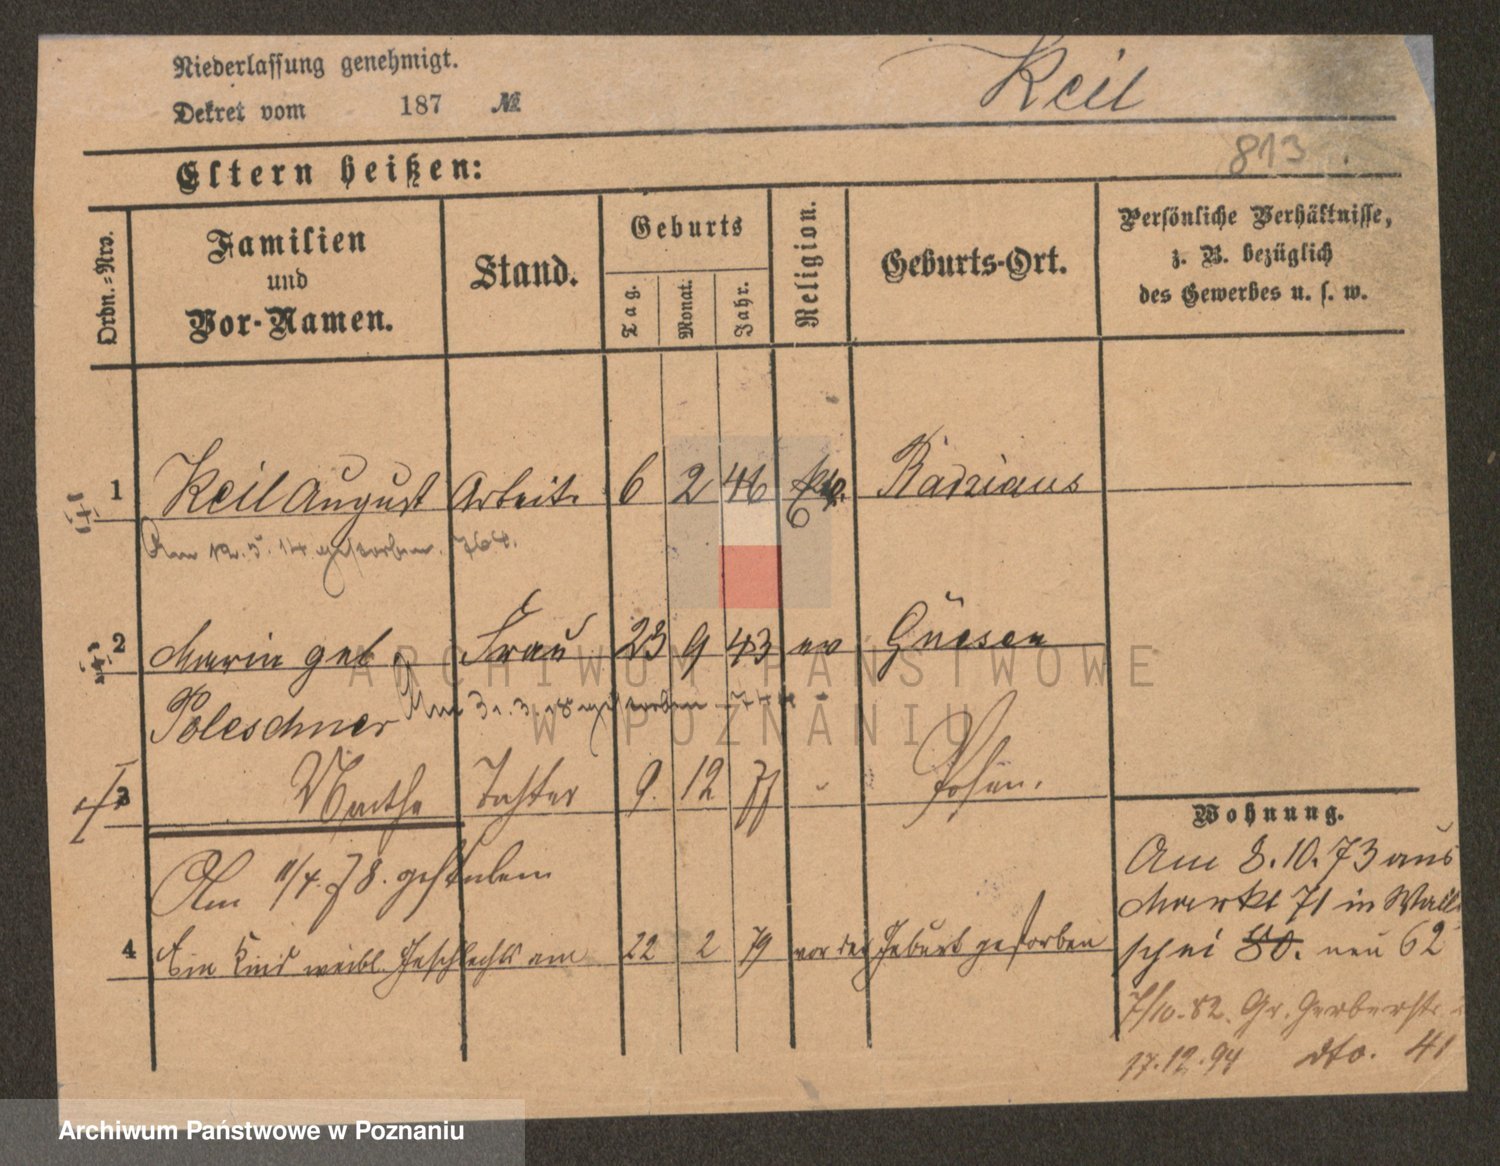 Niederlassung genehmigt.
Keil
Dekret vom 187 №
813
Eltern heißen:
Ordn.-Nro.
Familien und Vor-Namen.
Stand.
Geburts
Tag.
Monat.
Jahr.
Religion.
Geburts-Ort.
Persönliche Verhältnisse,
z. B. bezüglich
des Gewerbes u. s. w.
1 Keil August Arbeitr 6 2 46
Am 12.5.14 gestorben. 764.
2 Maria geb Frau 23 9 43 ev Gnesen
Poleschner Am 31.3.18 gestorben
3 Martha Tochter 9. 12 77 " Posen.
Am 11/4.78. gestorben
4 Ein Kind weibl. Geschlechts am 22 2 79 vor der Geburt gestorben
Wohnung.
Am 8.10.73 aus
Markt 71 in Walli
schei 80. neu 62
7/10.82. Gr. Gerberstr.
17.12.94 dto. 41
ARCHIWUM PAŃSTWOWE
W POZNANIU
Archiwum Państwowe w Poznaniu